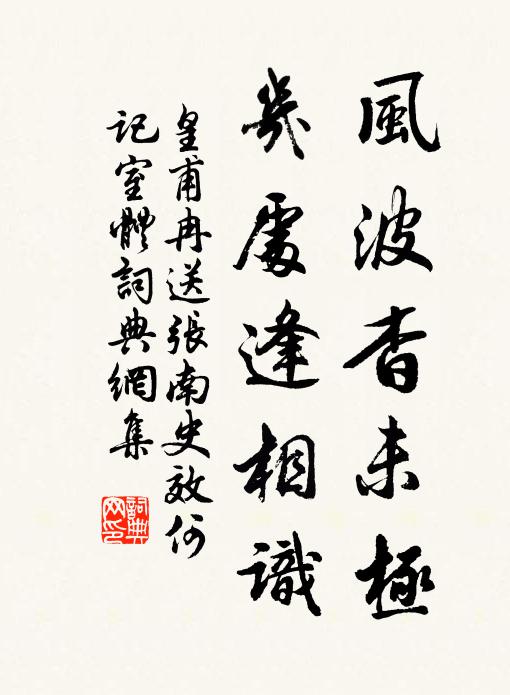 風波杳未極
幾處逢相識
皇甫冉送張南史效何
記室體詞典網集
詞典網印